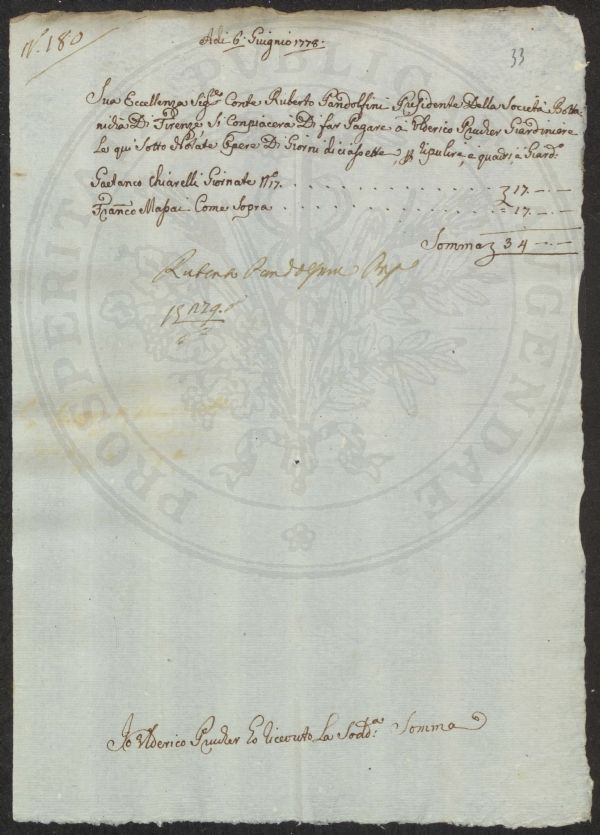 N. 180
Adi 6. Giugnio 1778.
33
Sua Eccellenza Sigre Conte Ruberto Pandolfini Presidente Della Società Botta-
nicha Di Firenze, Si Conpiacerà Di far Pagare à Ulderico Prucher Giardiniere
Le qui Sotto Notate Opere Di Giorni diciassette, p ripulire, e quadri, e Giardo
Gaetanco Chiarelli Giornate No 17. . . . . . . . . . . . . 17. — . —
Franco Massai Come Sopra . . . . . . . . . . . . 17. — . —
Somma 34 — . —
Ruberto Pandolfini
Io Ulderico Prucher Ho ricevuto La Sodda: Somma
PROSPERITATI PUBLICAE AUGENDAE